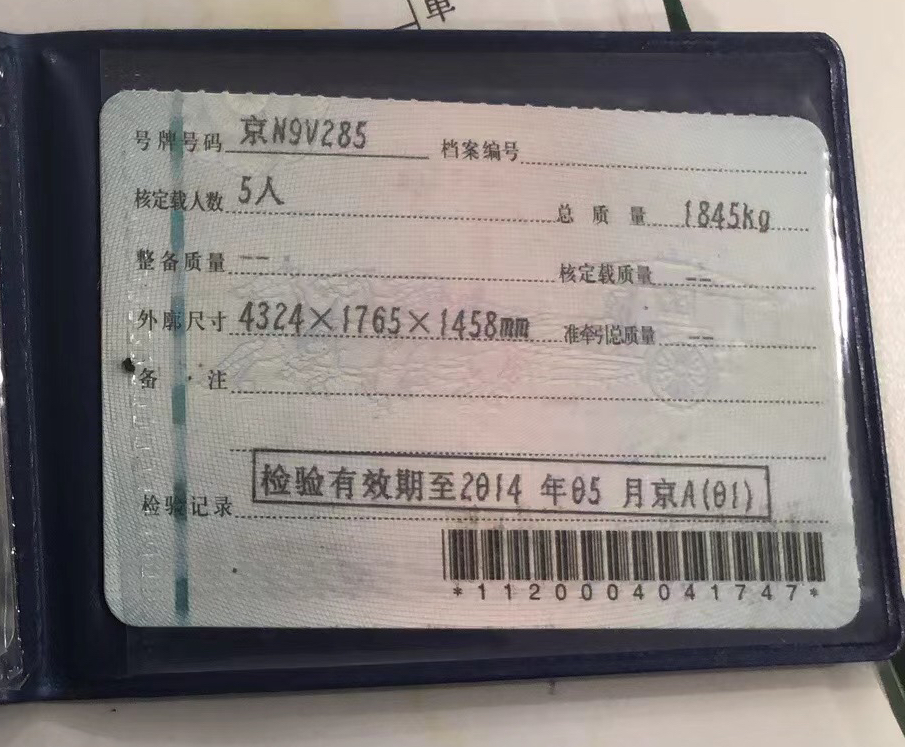 单
号牌号码 京N9V285 档案编号
核定载人数 5人 总质量 1845kg
整备质量 -- 核定载质量 --
外廓尺寸 4324×1765×1458mm 准牵引总质量 --
备注
检验有效期至2014 年05 月京A(01)
检验记录
*1120004041747*